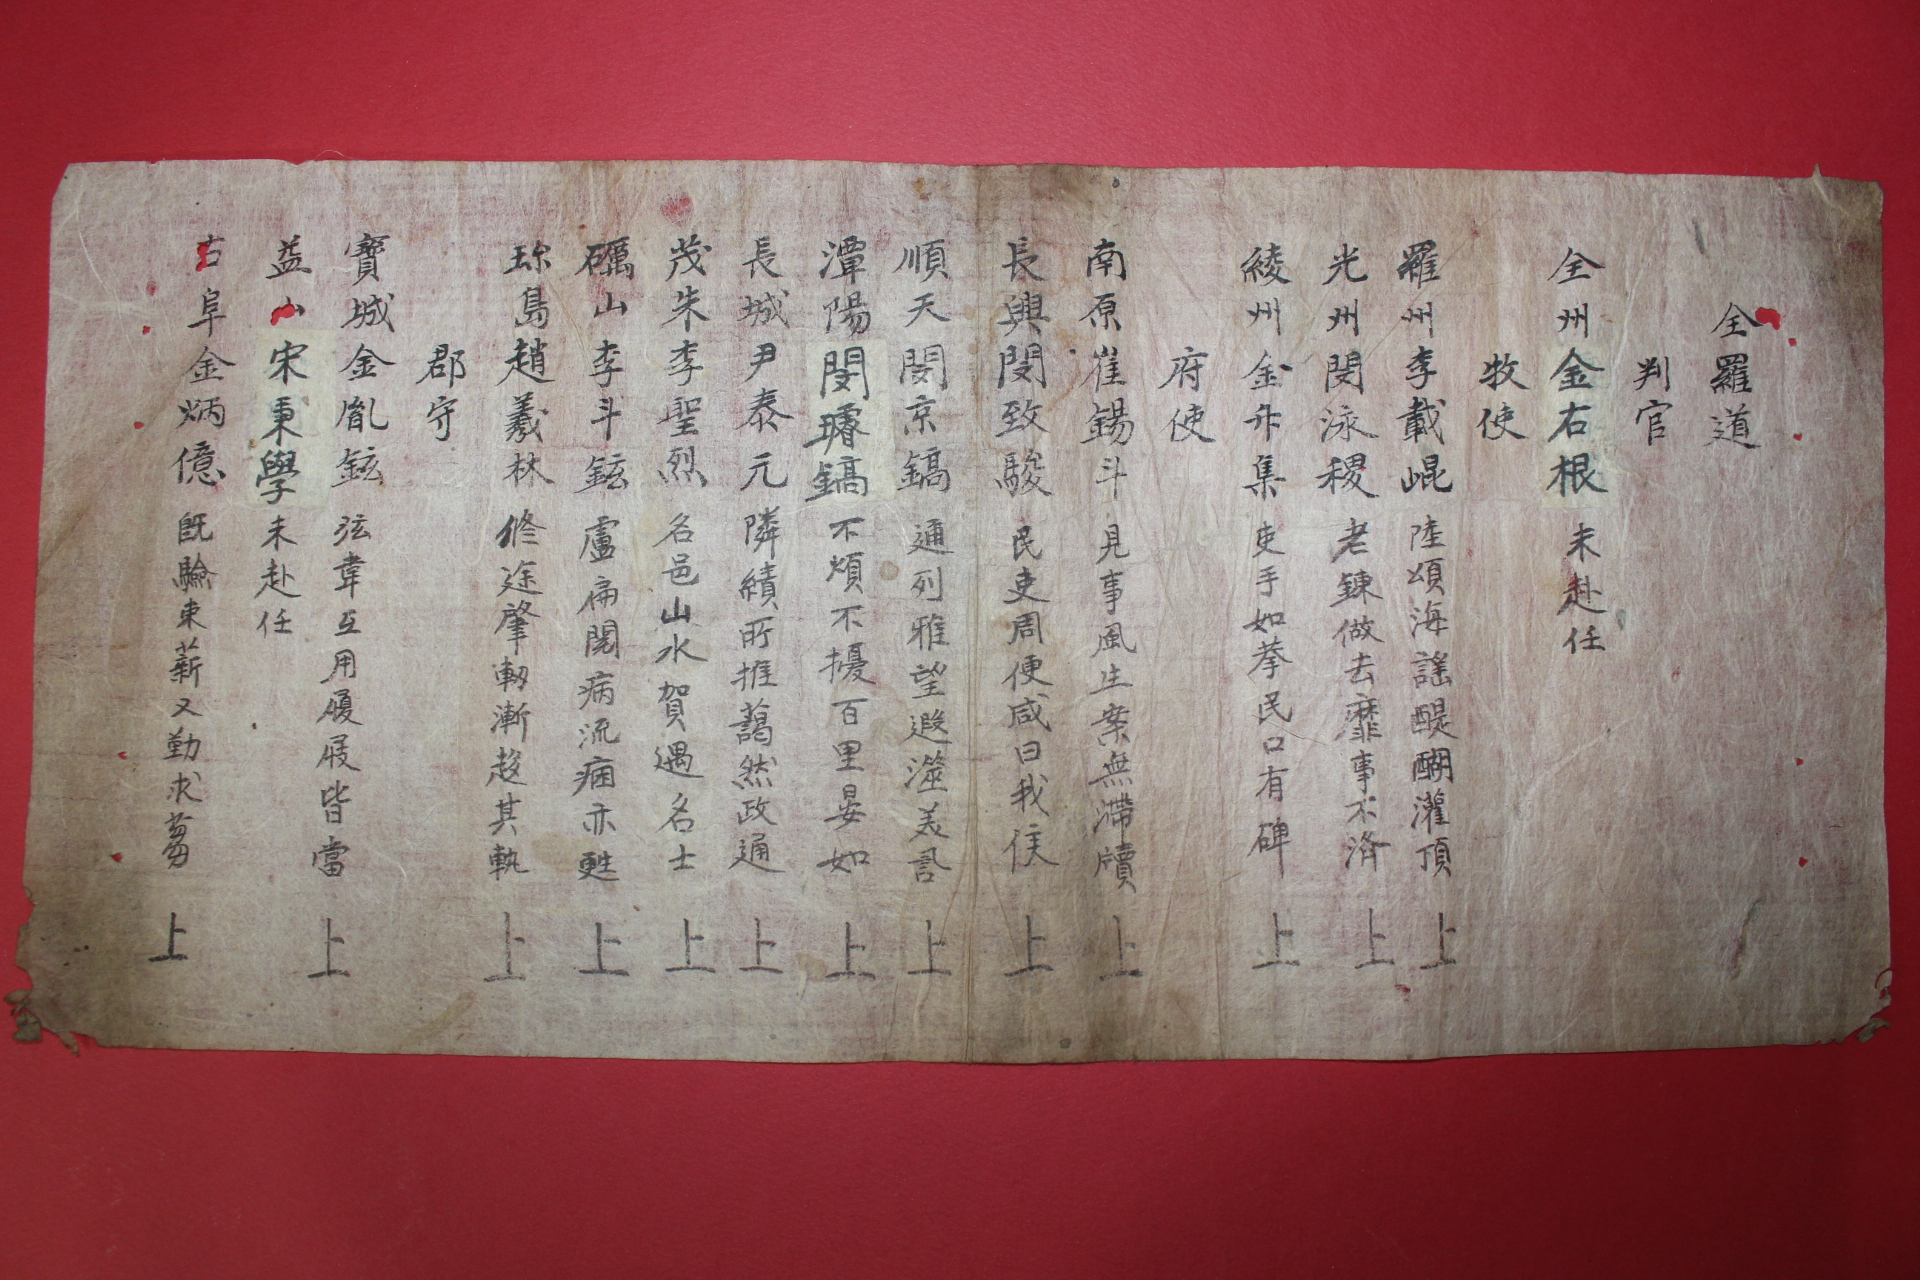 全羅道
判官
全州金右根 未赴任
牧使
羅州李載崐 陸頌海謠醍醐灌頂 上
光州閔泳稷 老鍊做去靡事不済 上
綾州金升集 吏手如拳民口有碑 上
府使
南原崔錫斗 見事風生案無滯牘 上
長興閔致駿 民吏周便咸曰我侯 上
順天閔京鎬 通列雅望遐澨美 上
潭陽閔璿鎬 不煩不擾百里晏如 上
長城尹泰元 隣績所推藹然政通 上
茂朱李聖烈 名邑山水賀遇名士 上
礪山李斗鉉 盧扁閱病流痼亦甦 上
珍島趙羲林 修途肇軔漸趁其軌 上
郡守
寶城金胤鉉 弦韋互用履屐皆當 上
益山宋秉學 未赴任
古阜金炳億 旣驗束薪又勤求蒭 上